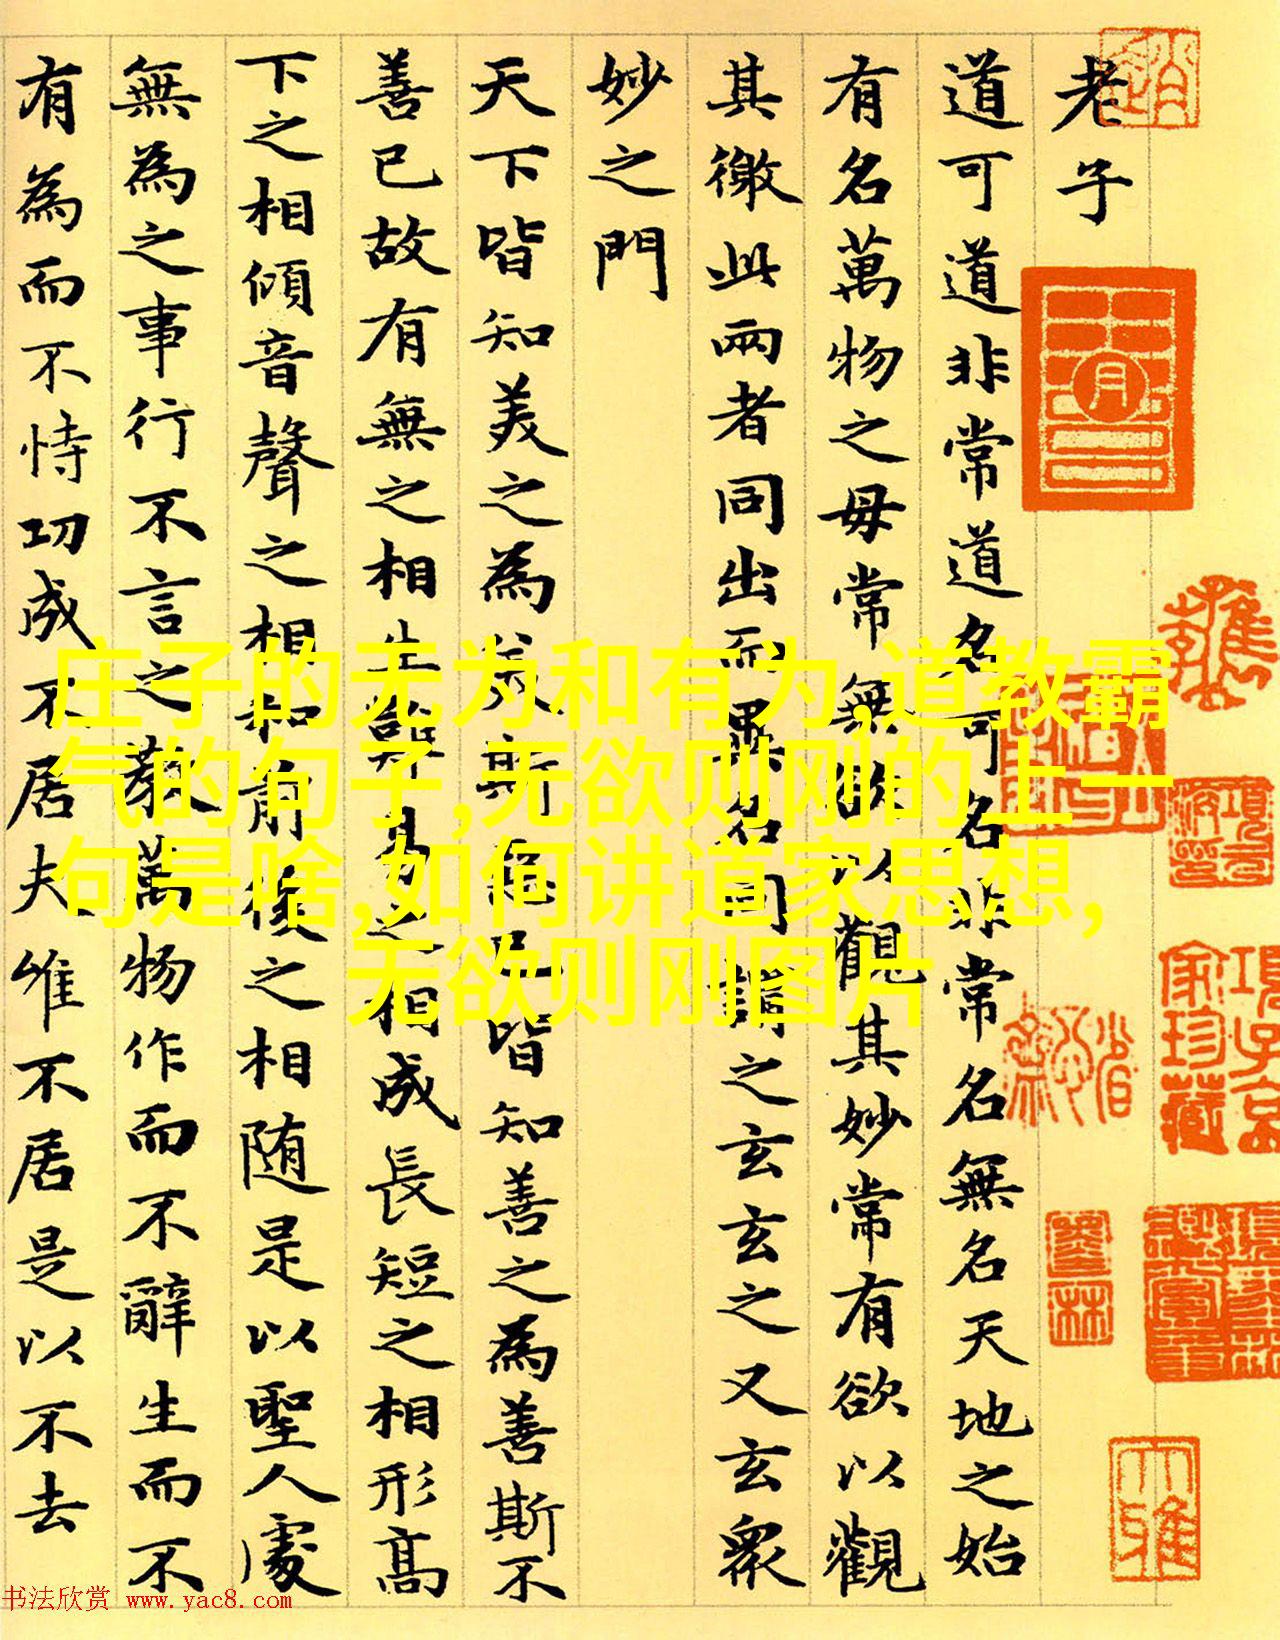 老子
道可道非常道名可名非常名無名天地之始
有名萬物之母常無欲以觀其妙常有欲以觀
其徼此兩者同出而異名同謂之玄玄之又玄衆
妙之門
天下皆知美之為美斯惡已皆知善之為善斯不
善已故有無之相生難易之相成長短之相形高
下之相傾音聲之相和前後之相随是以聖人處
無為之事行不言之教萬物作而不辭生而不
有為而不恃功成不居夫唯不居是以不去
庄子的无为和有为,道教霸
气的句子,无欲则刚的上一
句是啥,如何讲道家思想,
无欲则刚图片
书法欣赏 www.yac8.com